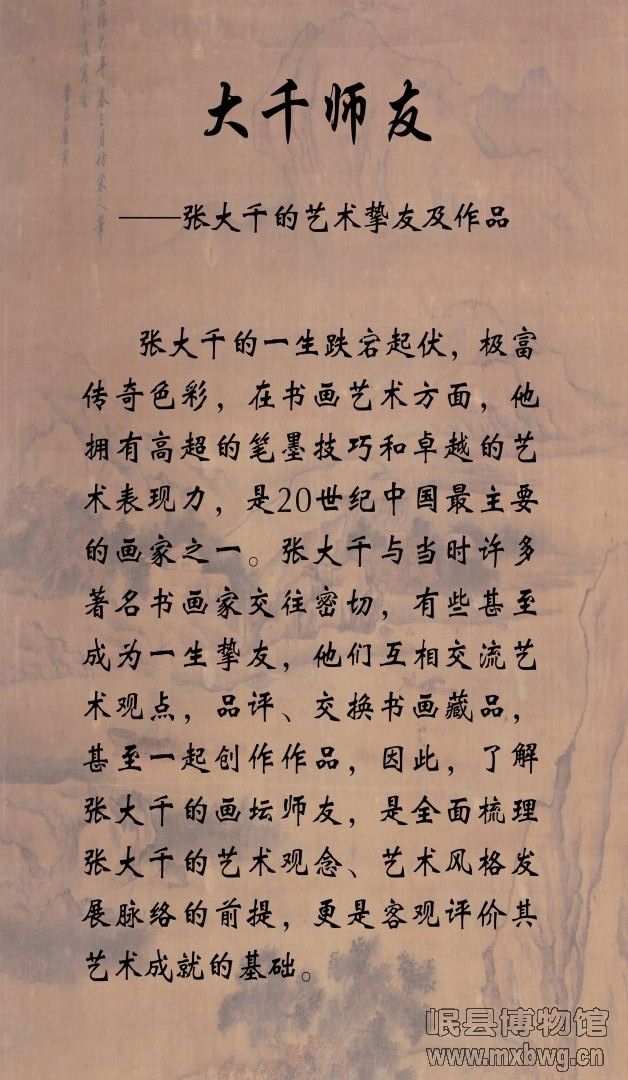 大千师友
——张大千的艺术挚友及作品
张大千的一生跌宕起伏，极富
传奇色彩，在书画艺术方面，他
拥有高超的笔墨技巧和卓越的艺
术表现力，是20世纪中国最主要
的画家之一。张大千与当时许多
著名书画家交往密切，有些甚至
成为一生挚友，他们互相交流艺
术观点，品评、交换书画藏品，
甚至一起创作作品，因此，了解
张大千的画坛师友，是全面梳理
张大千的艺术观念、艺术风格发
展脉络的前提，更是客观评价其
艺术成就的基础。
岷县博物馆
www.mxbwg.cn